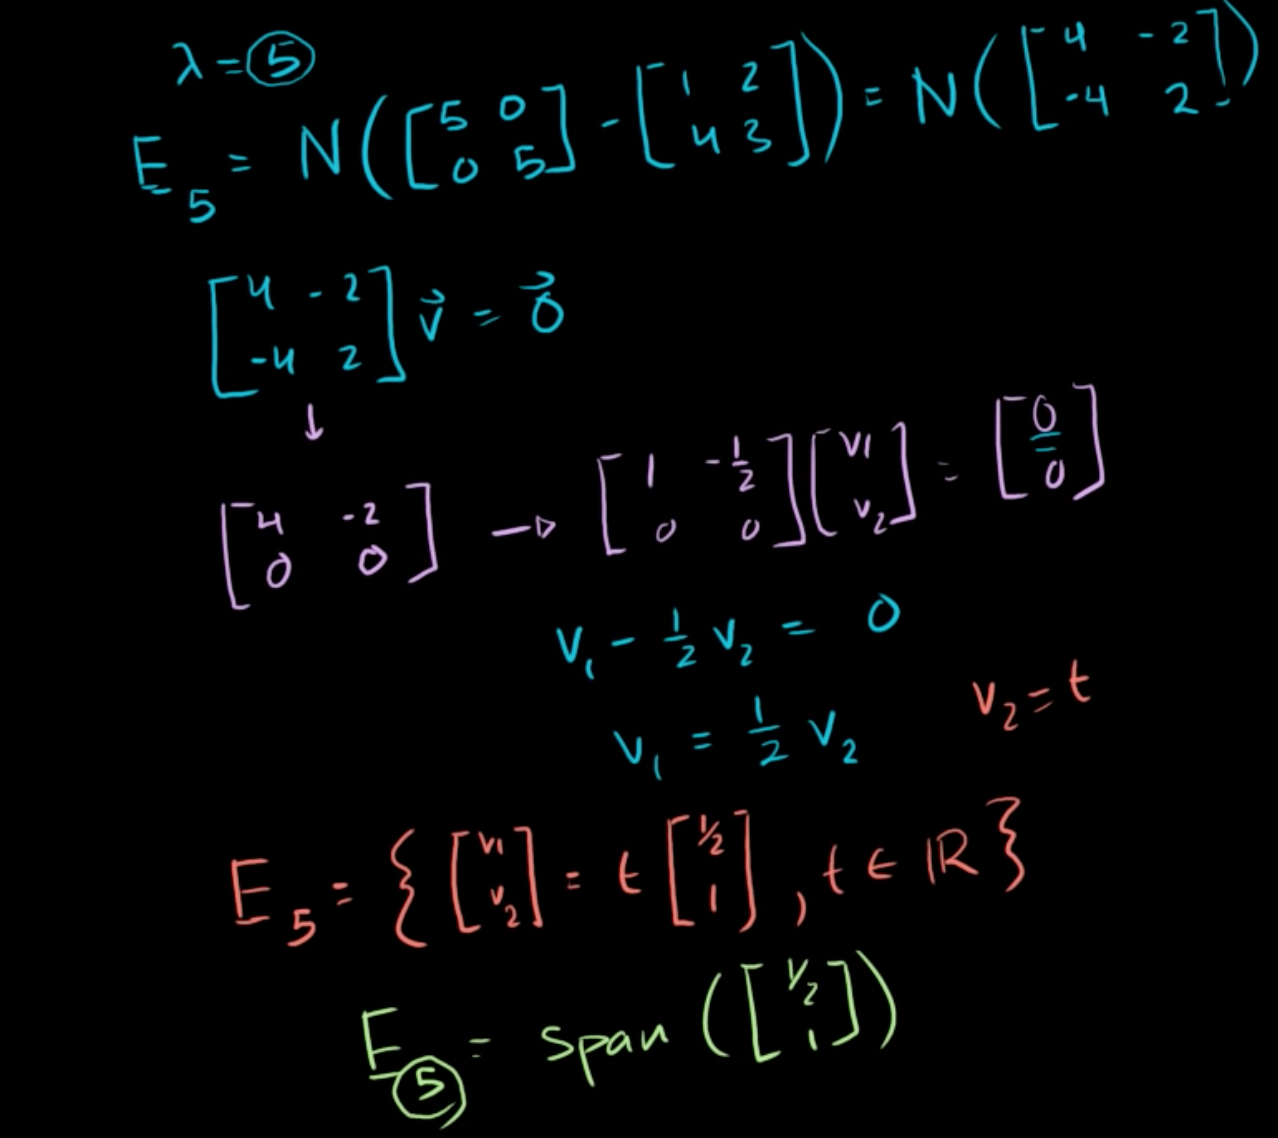 λ = 5
E₅ = N([5 0; 0 5] - [1 2; 4 3]) = N([4 -2; -4 2])
[4 -2; -4 2] v⃗ = 0⃗
↓
[4 -2; 0 0] → [1 -1/2; 0 0][v₁; v₂] = [0; 0]
v₁ - 1/2 v₂ = 0
v₁ = 1/2 v₂ v₂ = t
E₅ = {[v₁; v₂] = t [1/2; 1], t ∈ ℝ}
E₅ = span([1/2; 1])